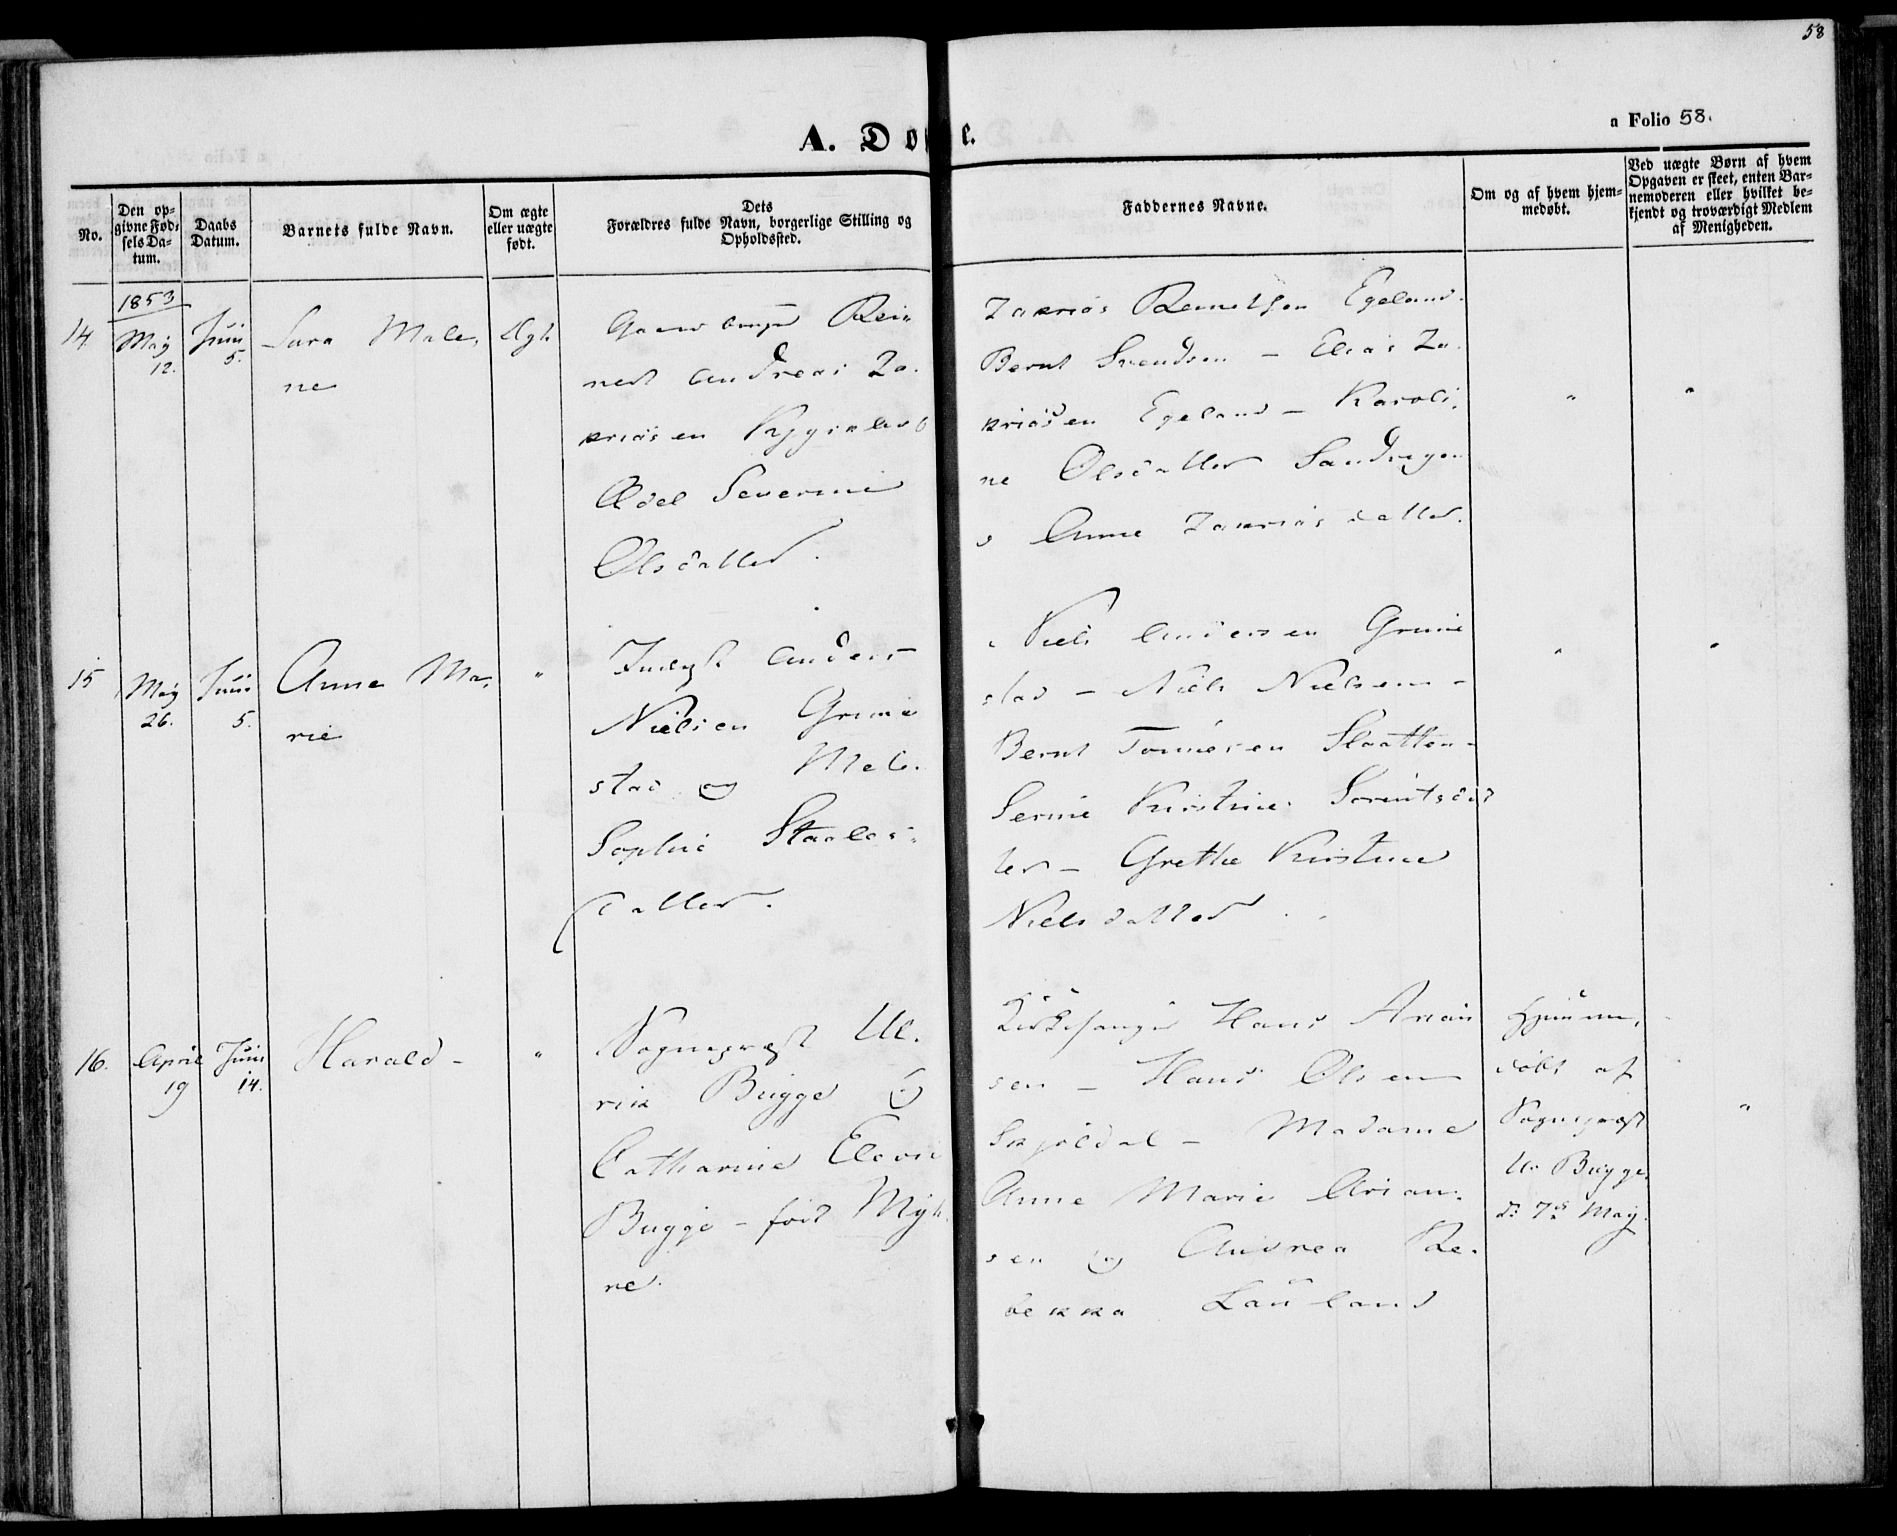 58
A. Døbte.
a Folio 58.
No.
Den op-
givne Fød-
sels Da-
tum.
Daabs
Datum.
Barnets fulde Navn.
Om ægte
eller uægte
født.
Dets
Forældres fulde Navn, borgerlige Stilling og
Opholdssted.
Faddernes Navne.
Om og af hvem hjem-
medøbt.
Ved uægte Børn af hvem
Opgaven er skeet, enten Bar-
nemoderen eller hvilket be-
kjendt og troværdigt Medlem
af Menigheden.
1853
14.
May
12.
Juni
5.
Sara Male,
ne
Ægte
Rei-
nert Andreas Za.
kriasen
Ædel Severine
Olsdatter.
Zakrias Reinertsen Egeland.
Bernt Svendsen - Elias Za.
kriasen Egeland - Karoli,
ne Olsdatter
Anne Zakriasdatter.
"
"
15
May
26.
Juni
5.
Anne Ma,
rie
"
Inderst Anders
Nielsen Grim
stad og
Sophie Staales-
datter.
Niels Andersen Grim
stad - Niels Nielsen -
Bernt Tønnesen Slaatten -
Serine Kirstine
ter - Grethe Kirstine
Nielsdatter
"
"
16.
April
19
Juni
14.
Harald -
"
Sognepræst Ul.
rik Bugge og
Catharine
Bugge - født Myh
re.
Kirkesanger Hans Arian
sen - Hans Olsen
Skjöldal - Madame
Anne Marie Arian.
sen og Andrea Re.
bekka Lauland
Hjemme,
døbt af
Sognepræst
U. Bugge
d: 7de May.
"